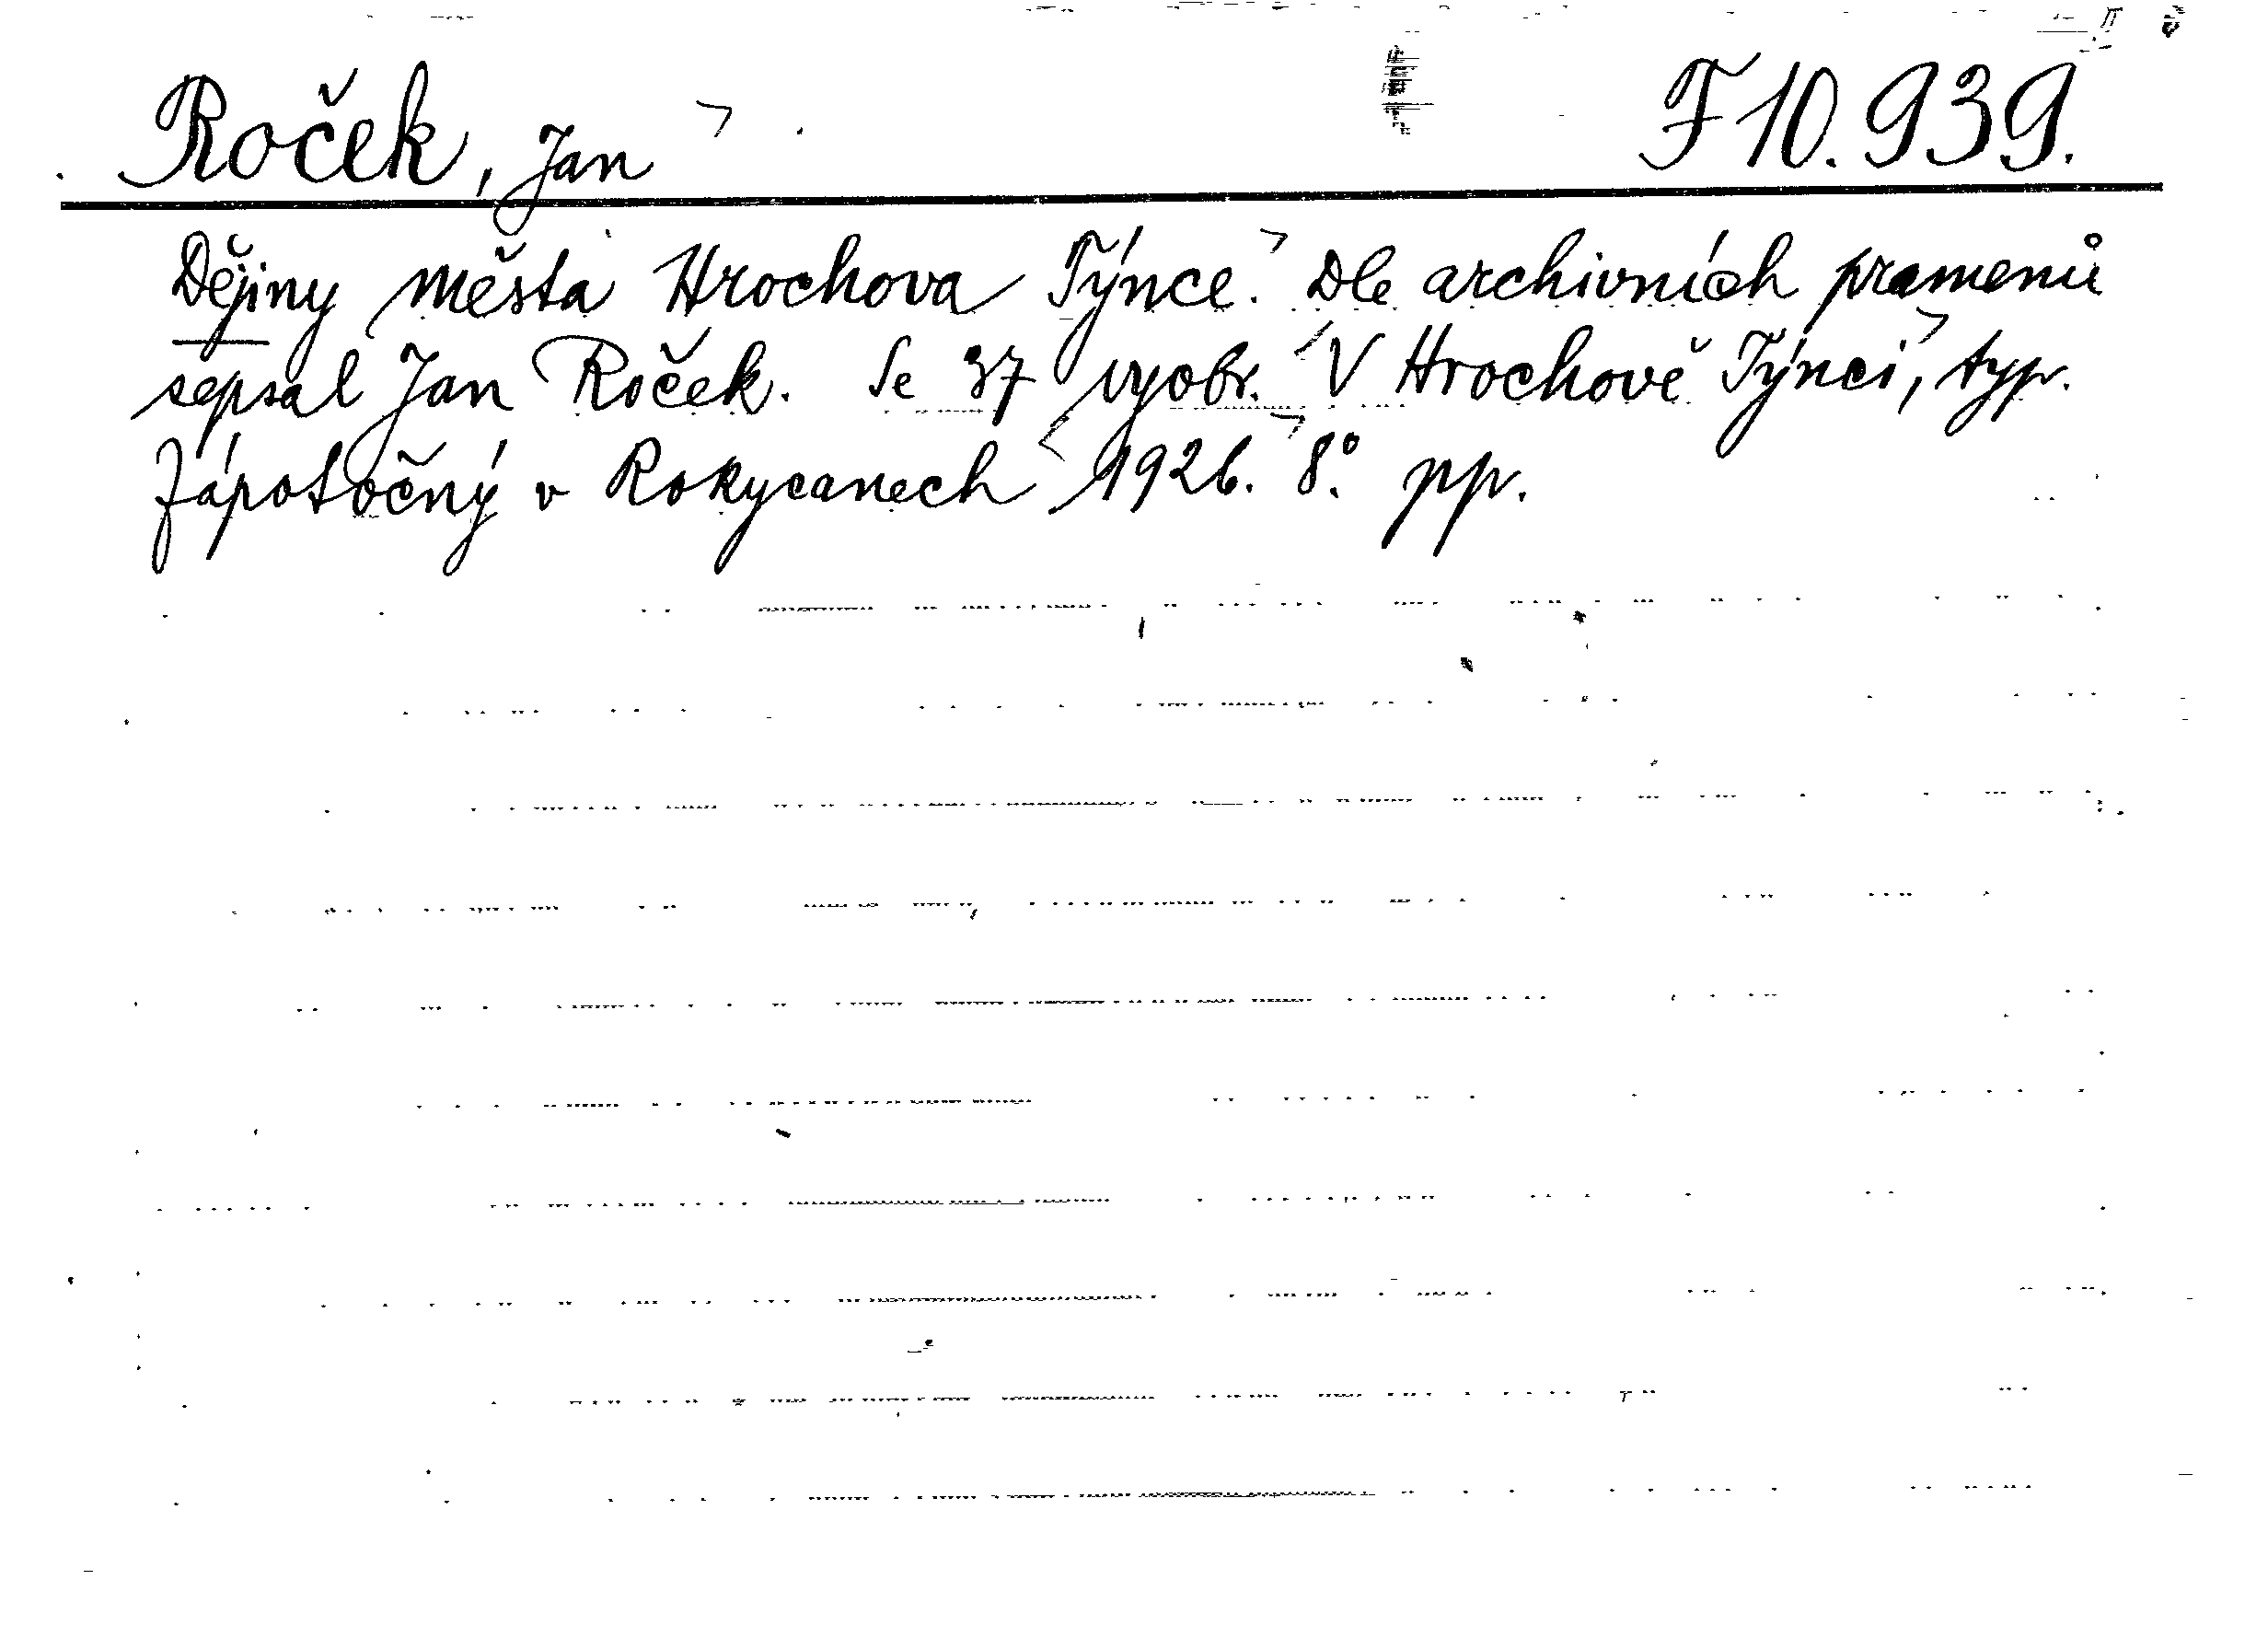 Roček, Jan F 10.939.
Dějiny města Hrochova Týnce. Dle archivních pramenů
sepsal Jan Roček. Se 37 vyobr. V Hrochově Týnci, typ.
Zápotočný v Rokycanech 1926. 8° pp.